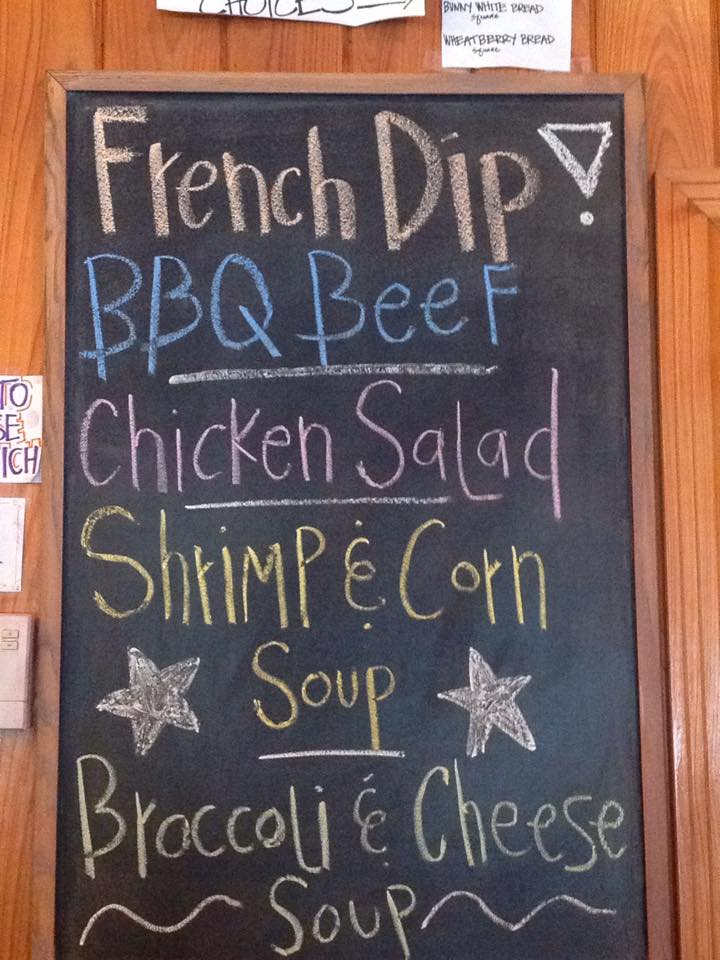 CHOICES
BUNNY WHITE BREAD
square
WHEATBERRY BREAD
square
French Dip!
BBQ Beef
Chicken Salad
TO
SE
ICH
Shrimp & Corn
Soup
Broccoli & Cheese
Soup